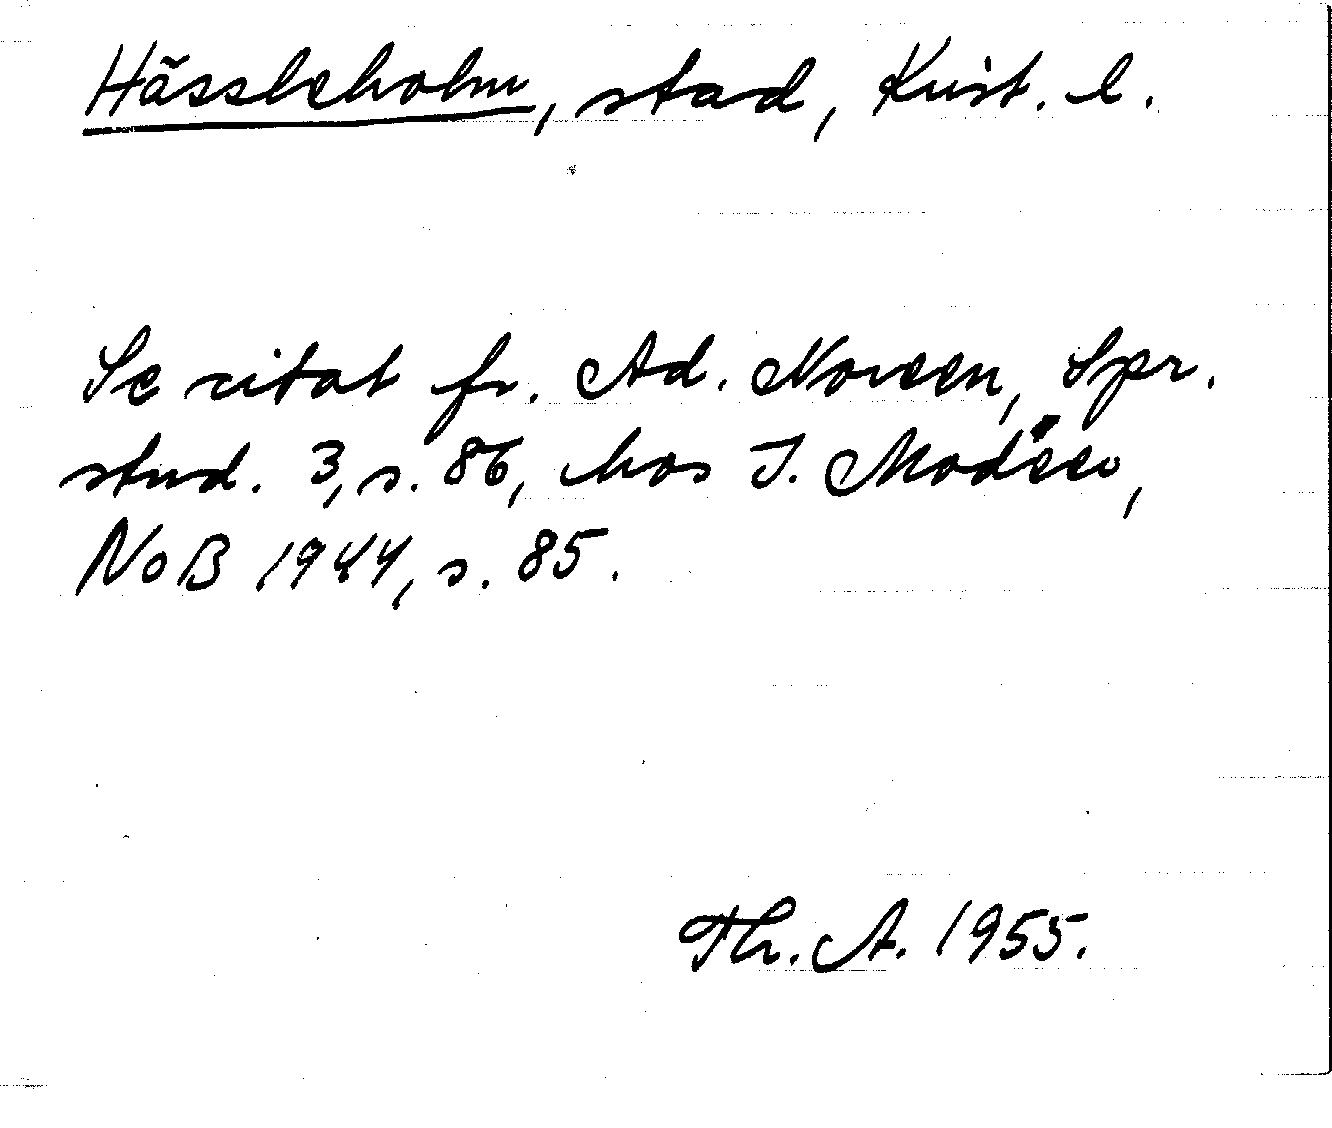 Hässleholm, stad, Krist. l.
Se citat fr. Ad. Noreen, Spr.
stud. 3, s. 86, hos I. Modéer,
NoB 1944, s. 85.
Th. A. 1955.